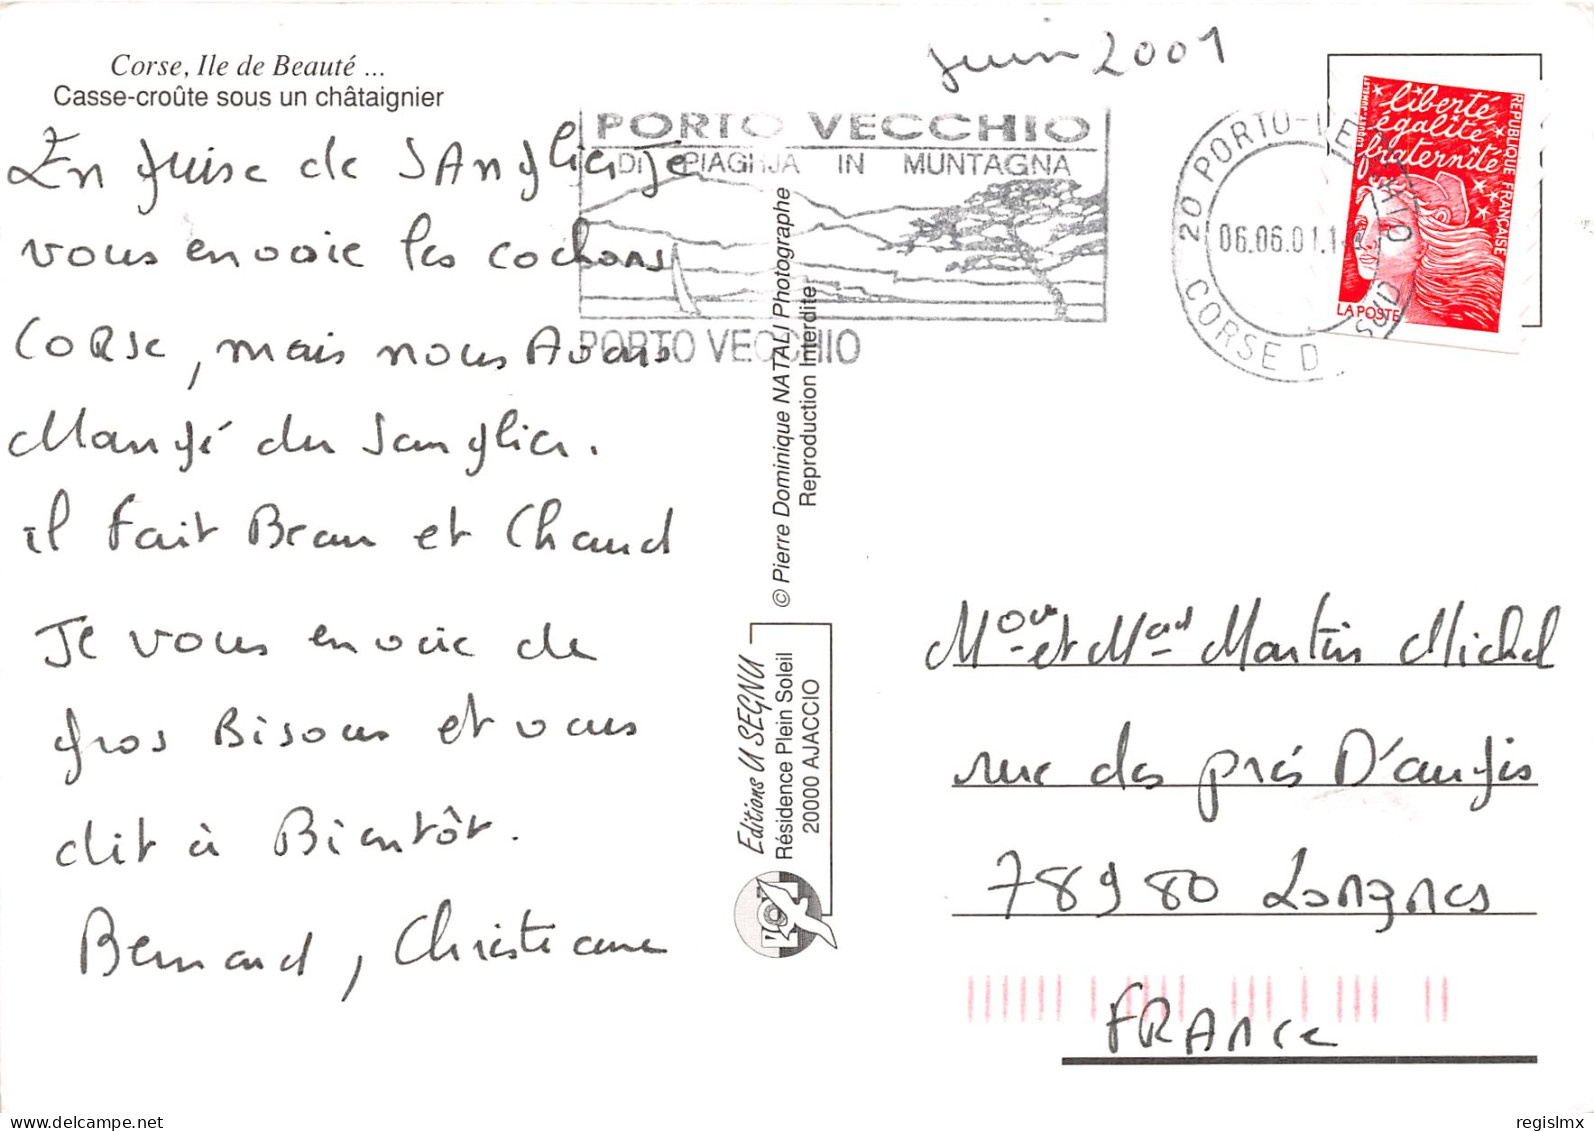 Corse, Ile de Beauté ...
Casse-croûte sous un châtaignier
juin 2001
En guise de SAnglier Je
vous envoie les cochons
CORSe, mais nous Avons
Mangé du Sanglier.
il Fait Beau et Chaud
Je vous envoie de
gros Bisous et vous
dit à Bientôt.
Bernard, Christiane
PORTO VECCHIO
DI PIAGHJA IN MUNTAGNA
PORTO VECCHIO
20 PORTO-VECCHIO
06.06.01
CORSE DU SUD
liberté
égalité
fraternité
REPUBLIQUE FRANÇAISE
LA POSTE
© Pierre Dominique NATALI Photographe
Reproduction Interdite
Editions U SEGNU
Résidence Plein Soleil
20000 AJACCIO
et Martin Michel
rue des prés D'augis
78980 Longnes
FRANCe
regislmx